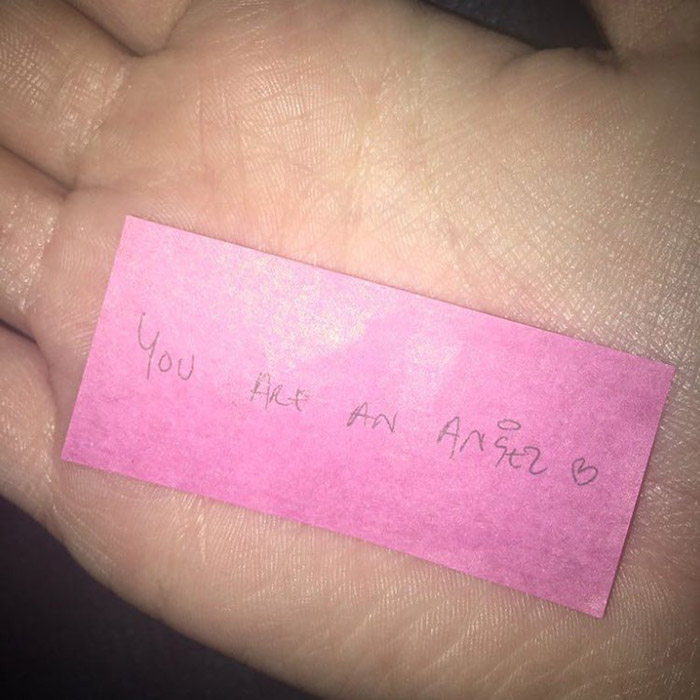 YOU ARE AN ANGEL ♡